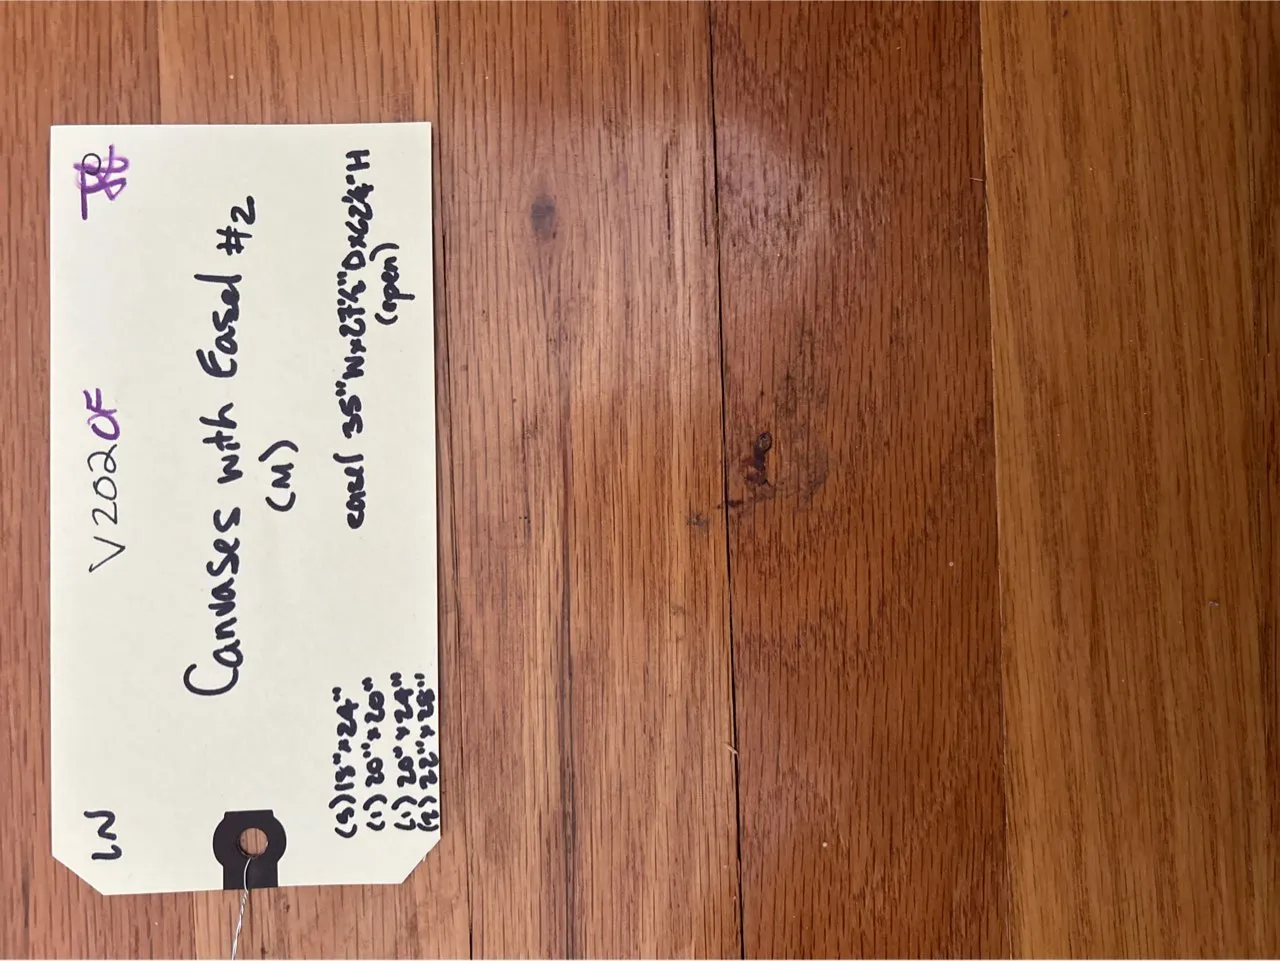 LN V202OF
Canvases with Easel #2
(N)
(3) 18" x 24"
(1) 20" x 20"
(1) 20" x 24"
(2) 22" x 28"
easel 35" W x 27½" D x 62¼" H
(open)